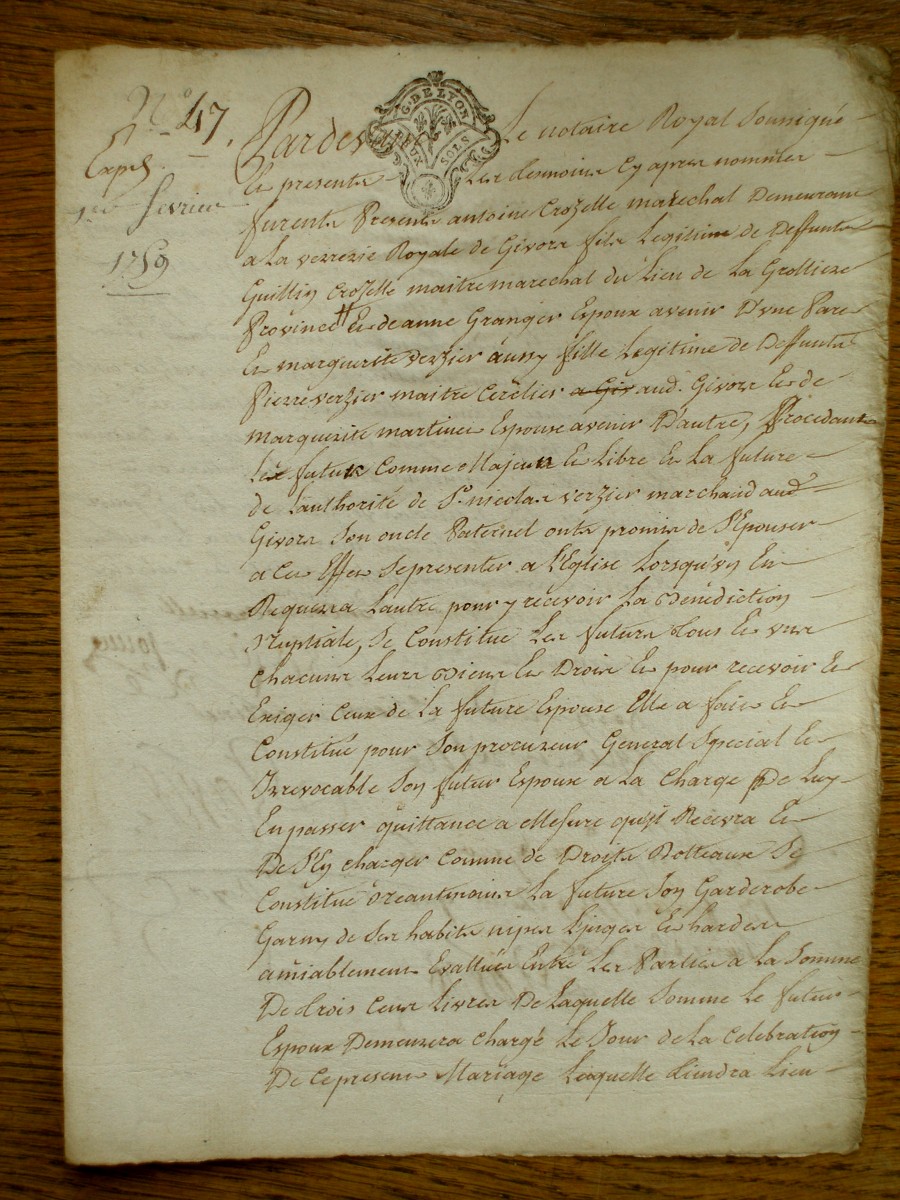 N.° 47.
Exped.
1er fevrier
1759
G. DE LYON
DEUX SOLS
Pardevant Le notaire Royal Soussigné
Et presents Les temoins Cy apres nommées
furents Presents antoine Crozelle maréchal Demeurant
a La verrerie Royale de Givors fils Legitime de Deffunts
Guilliy Crozelle maitre marechal du Lieu de La Grolliere
Province # Et de anne Granger Espoux avenir D'vne Part
Et marguerite verzier aussy fille Legitime de Deffunts
Pierre verzier maitre Cerclier a Giv aud. Givors Et de
marguerite martinet Espouse avenir D'autre, Procedant
Le futur Comme Majeur Et Libre Et La future
de L'authorité de Sr. nicolas verzier marchand aud.
Givors Son oncle Paternel onts promis de S'Epouser
a Cet Effet Se presenter a L'Eglise Lorsqu'vn En
Requerra Lautre pour y recevoir La Bénédiction
Nuptiale, Se Constitué Les futurs tous Et vns
chacuns Leurs Biens Et Droits Et pour recevoir Et
Exiger Ceux de La future Espouse Elle a fait Et
Constitué pour Son procureur General Special Et
Irrevocable Son futur Espoux a La Charge De Luy
En passer quittance a Mesure qu'il Recevra Et
De S'En charger Comme de Droits Dotteaux Se
Constitué Neantmoins La future Son Garderobe
Garny de Ses habits nipes Linges Et hardes
amiablement Evallüés Entre Les Parties a La Somme
De trois Cent Livres De Laquelle Somme Le futur
Espoux Demeurera Chargé Le Jour de La Celebration
De Ce present Mariage Laquelle tiendra Lieu